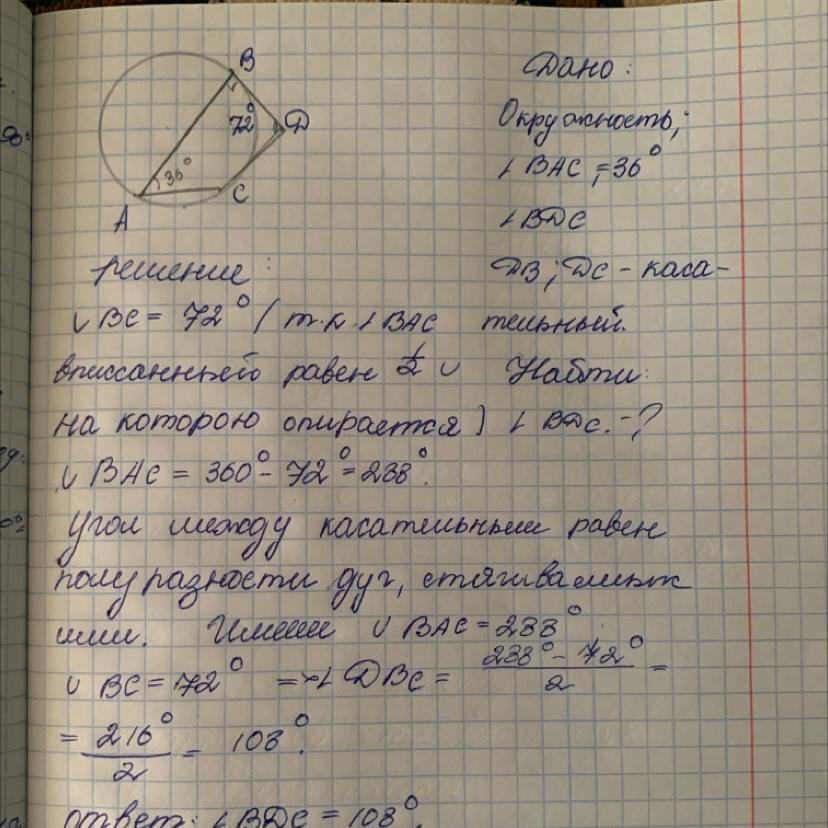 B
72° D
36°
C
A
Дано:
Окружность;
∠BAC = 36°
∠BDC
DB; DC - каса-
тельный.
Найти:
∠BDC. - ?
решение:
∪ BC = 72° (т.к. ∠BAC
вписсанныей равен 1/2 ∪
на которою опирается)
∪ BAC = 360° - 72° = 288°.
Угол между касательными равен
полуразности дуг, стягиваемых
ими. Имеем ∪ BAC = 288°
∪ BC = 72° => ∠DBC = (288° - 72°)/2 =
= 216°/2 = 108°.
ответ: ∠BDC = 108°.